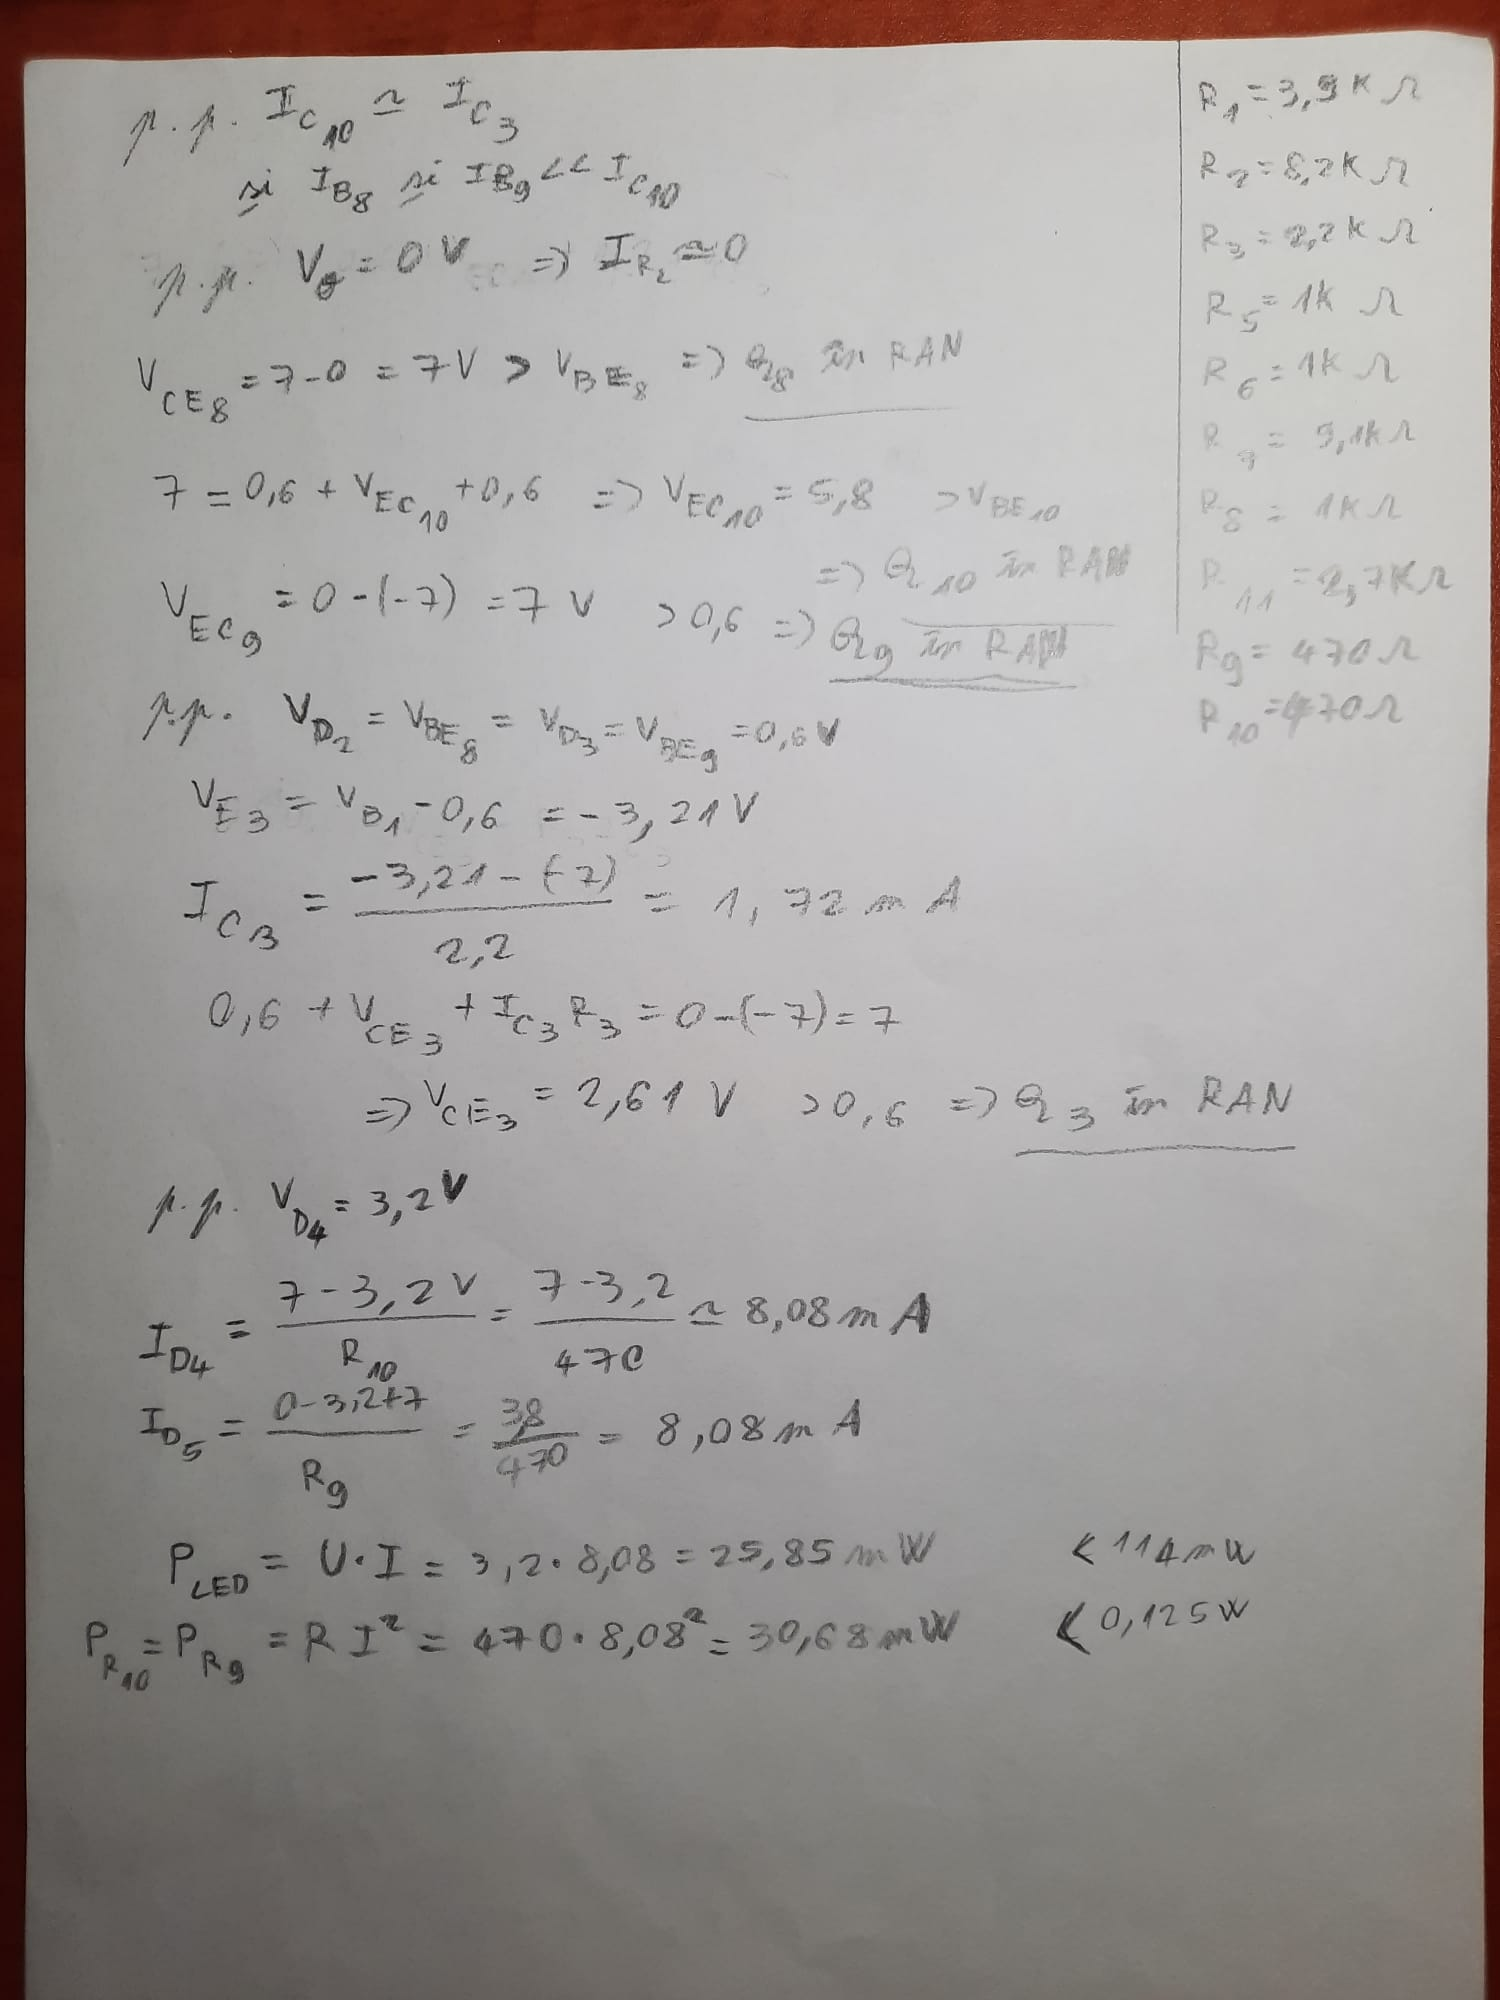 p.p. I_C10 ≃ I_C3
și I_B8 și I_B9 << I_C10
p.p. V_0 = 0 V => I_R2 ≃ 0
V_CE8 = 7-0 = 7V > V_BE8 => Q8 în RAN
7 = 0,6 + V_EC10 + 0,6 => V_EC10 = 5,8 > V_BE10
=> Q10 în RAN
V_EC9 = 0-(-7) = 7 V > 0,6 => Q9 în RAN
p.p. V_D2 = V_BE8 = V_D3 = V_BE9 = 0,6 V
V_E3 = V_B1 - 0,6 = -3,21 V
I_C3 = (-3,21-(-7))/2,2 = 1,72 mA
0,6 + V_CE3 + I_C3 R3 = 0-(-7) = 7
=> V_CE3 = 2,61 V > 0,6 => Q3 în RAN
p.p. V_D4 = 3,2 V
I_D4 = (7-3,2V)/R10 = (7-3,2)/470 ≃ 8,08 mA
I_D5 = (0-3,2+7)/R9 = 3,8/470 = 8,08 mA
P_LED = U·I = 3,2·8,08 = 25,85 mW < 114 mW
P_R10 = P_R9 = R I² = 470·8,08² = 30,68 mW < 0,125 W
R1 = 3,9 K Ω
R2 = 8,2 K Ω
R3 = 2,2 K Ω
R5 = 1K Ω
R6 = 1K Ω
R7 = 9,1K Ω
R8 = 1K Ω
R11 = 2,7K Ω
R9 = 470 Ω
R10 = 470 Ω